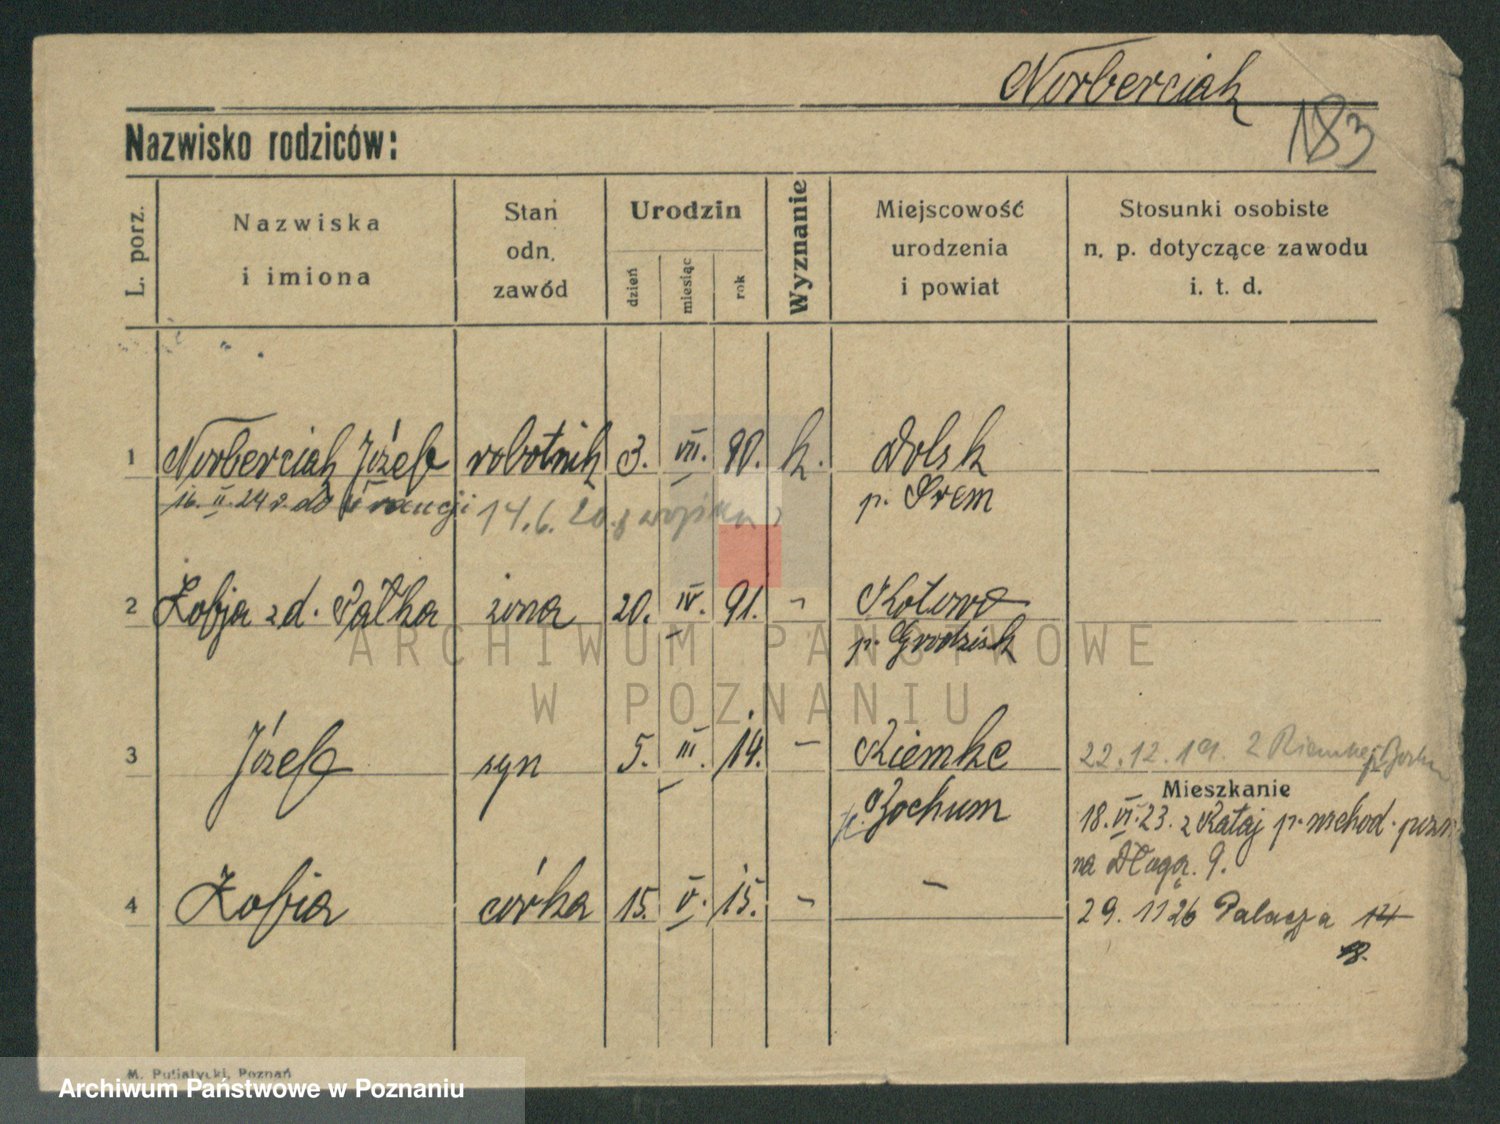 Norberciak
183
Nazwisko rodziców:
L. porz.
Nazwiska
i imiona
Stan
odn.
zawód
Urodzin
dzień
miesiąc
rok
Wyznanie
Miejscowość
urodzenia
i powiat
Stosunki osobiste
n. p. dotyczące zawodu
i. t. d.
1 Norberciak Józef robotnik 3. VII. 90. k. Dolsk
16. II. 24 r. do 14. 6. 20. z p. Śrem
2 Zofja z d. Pałka żona 20. IV. 91. - Kotowo
p. Grodzisk
ARCHIWUM PAŃSTWOWE
W POZNANIU
3 Józef syn 5. III. 14. - Riemke 22. 12. 19. z Riemke
Mieszkanie
p. Bochum 18. VI. 23. z Rataj p. wschod. pozn
na Długą. 9.
4 Zofia córka 15. V. 15. - - 29. 11 26 Palacza 14
18.
M. Putiatycki, Poznań
Archiwum Państwowe w Poznaniu